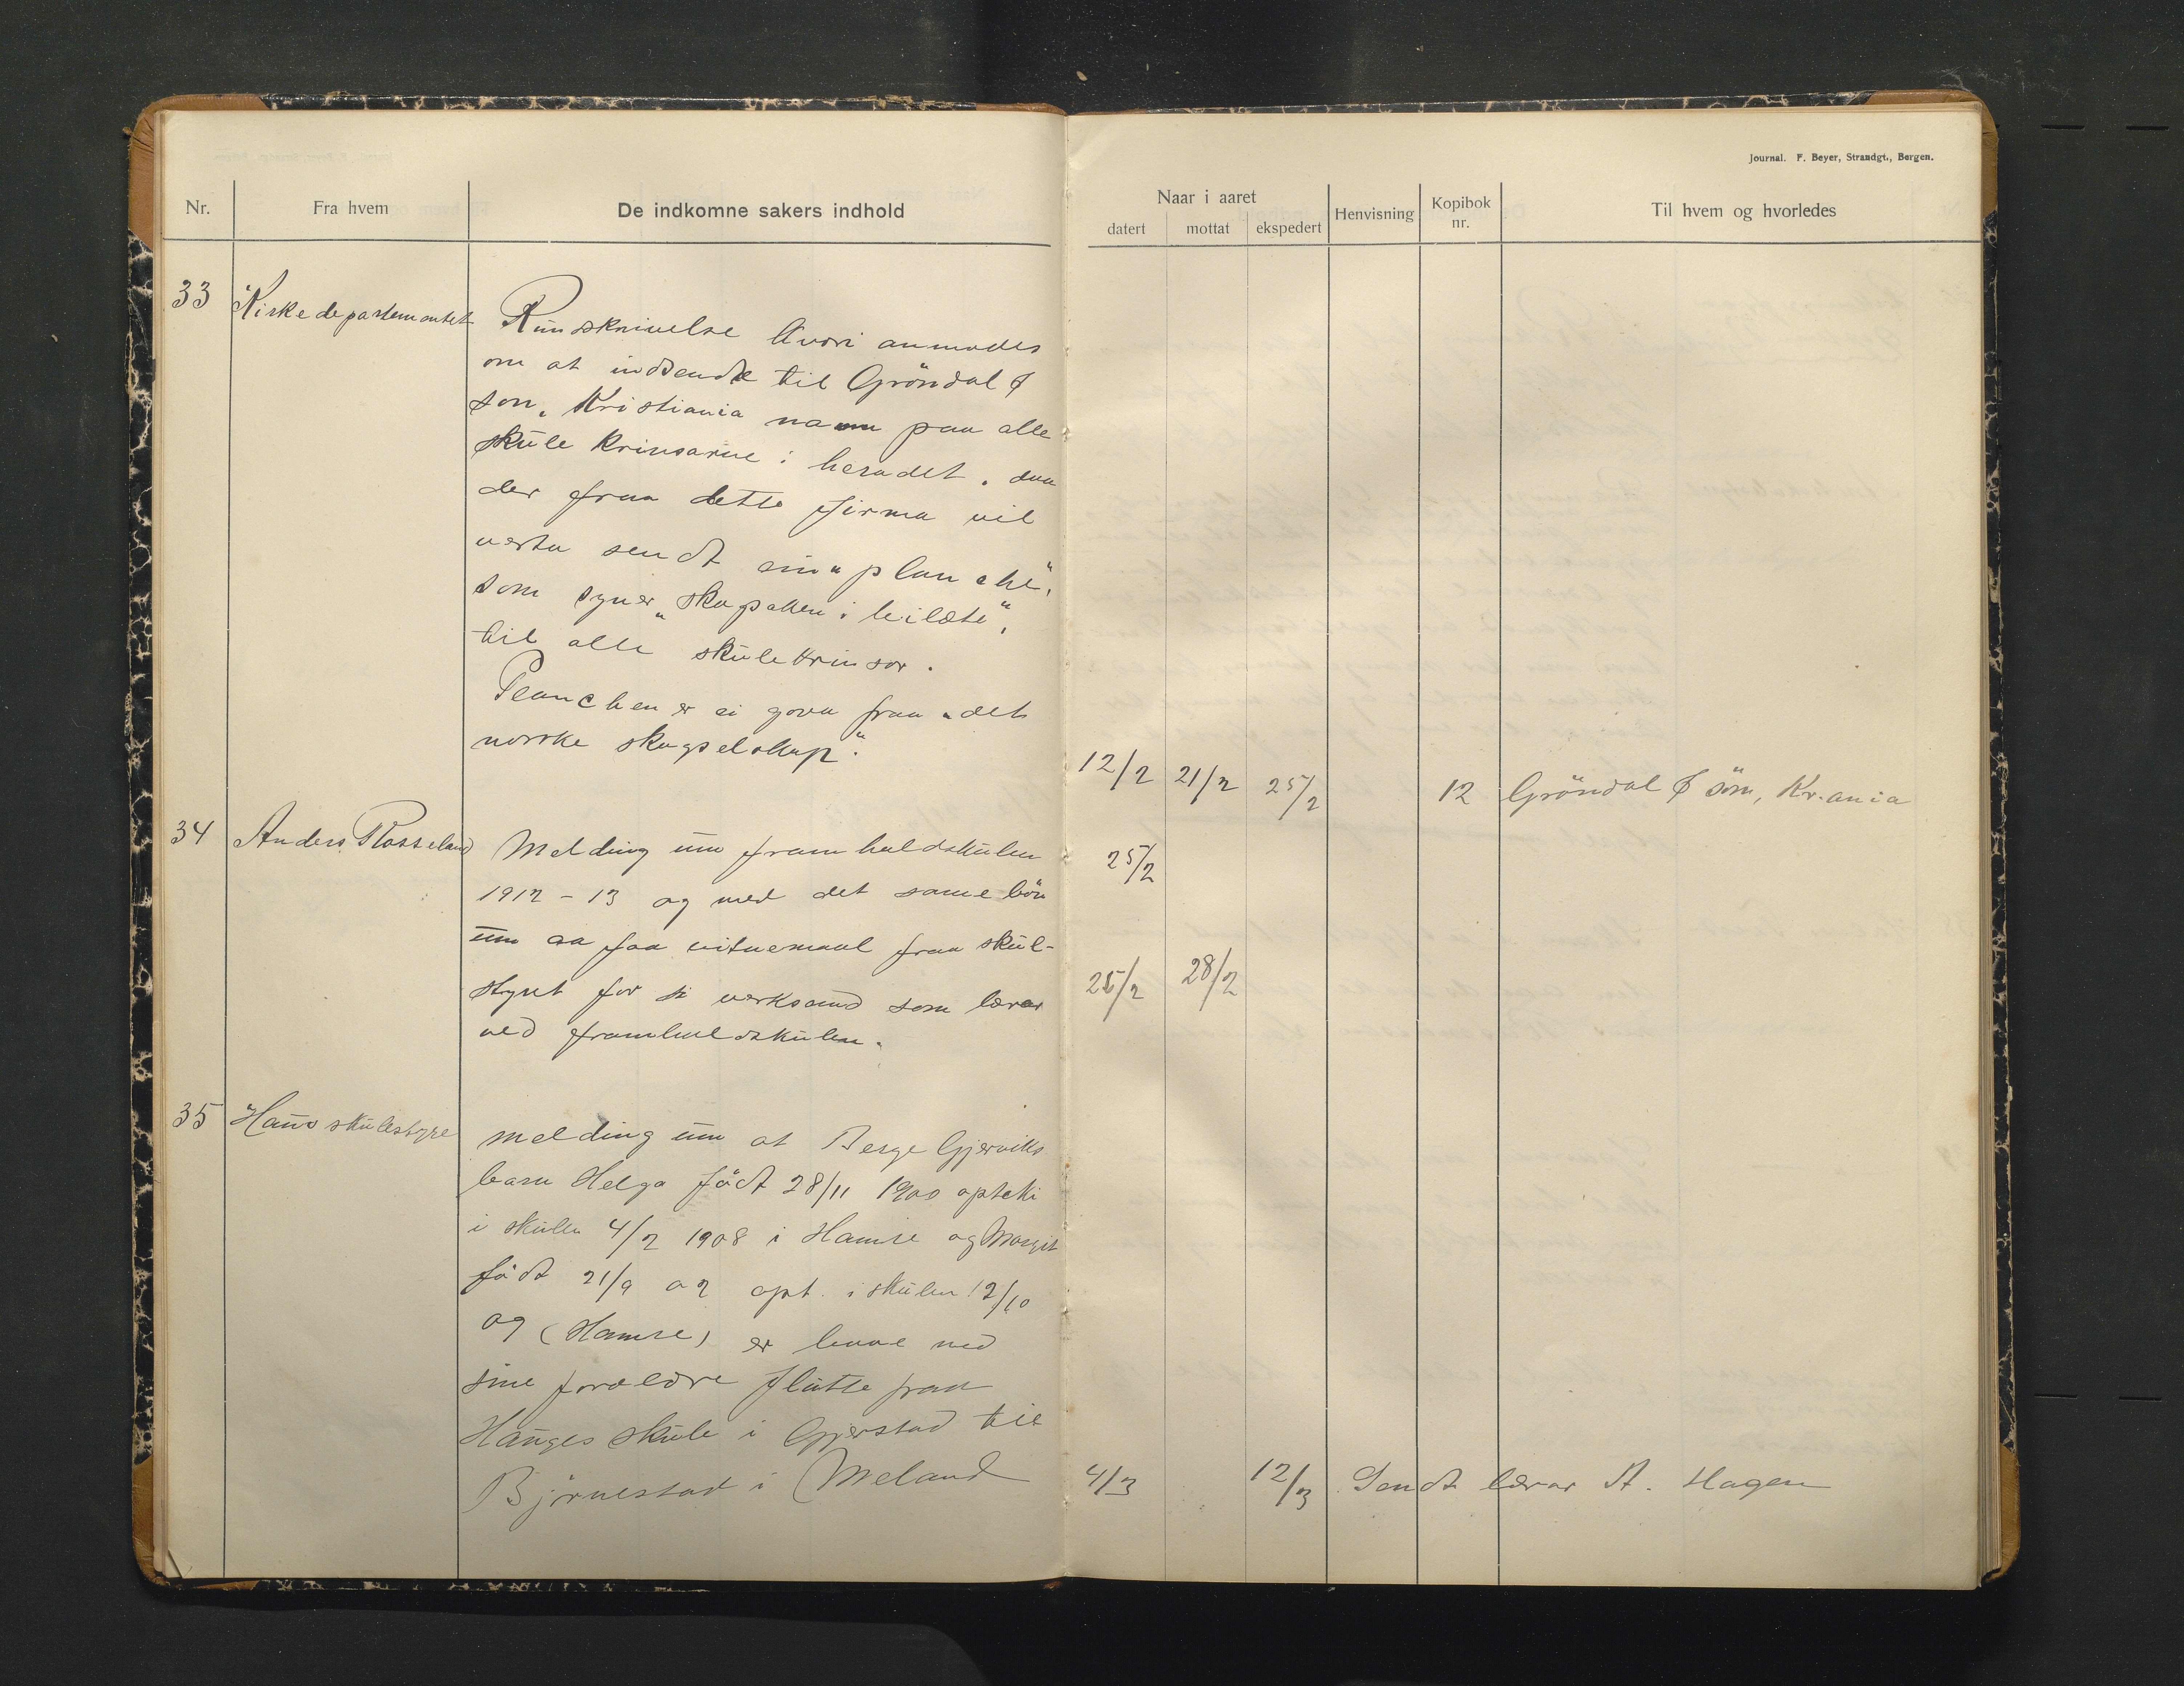 Journal. F. Beyer, Strandgt., Bergen.
Nr. Fra hvem De indkomne sakers indhold
Naar i aaret
datert mottat ekspedert Henvisning Kopibok nr. Til hvem og hvorledes
33 Kirkedepartementet Rundskrivelse kvori anmodes
om at indsende til Gröndal &
son, Kristiania namn paa alle
skule krinsarne i heradet, daa
der fraa dette firma vil
verta sendt ein "planche",
som syner "skogsaken i bilæte",
til alle skulekrinsar.
Planchen er ei gova fraa "det
norske skogselskap".
12/2 21/2 25/2 12 Gröndal & sön, Kr.ania
34 Anders Rosseland Melding um framhaldskulen 25/2
1912-13 og med det same bön
um aa faa vitnemaal fraa skul-
styret for si verksemd som lærar 25/2 28/2
ved framhaldskulen.
35 Haus skulestyre Melding um at Berge Gjerviks
barn Helga född 28/11 1900 opteki
i skulen 4/2 1908 i Hamre og Margit
född 21/9 02 opt. i skulen 12/10
09 (Hamre) er bæe med
sine foreldre flutte fraa
Hauges skule i Gjerstad til
Björnestad i Meland 4/3 12/3 Sendt lærar A. Hagen